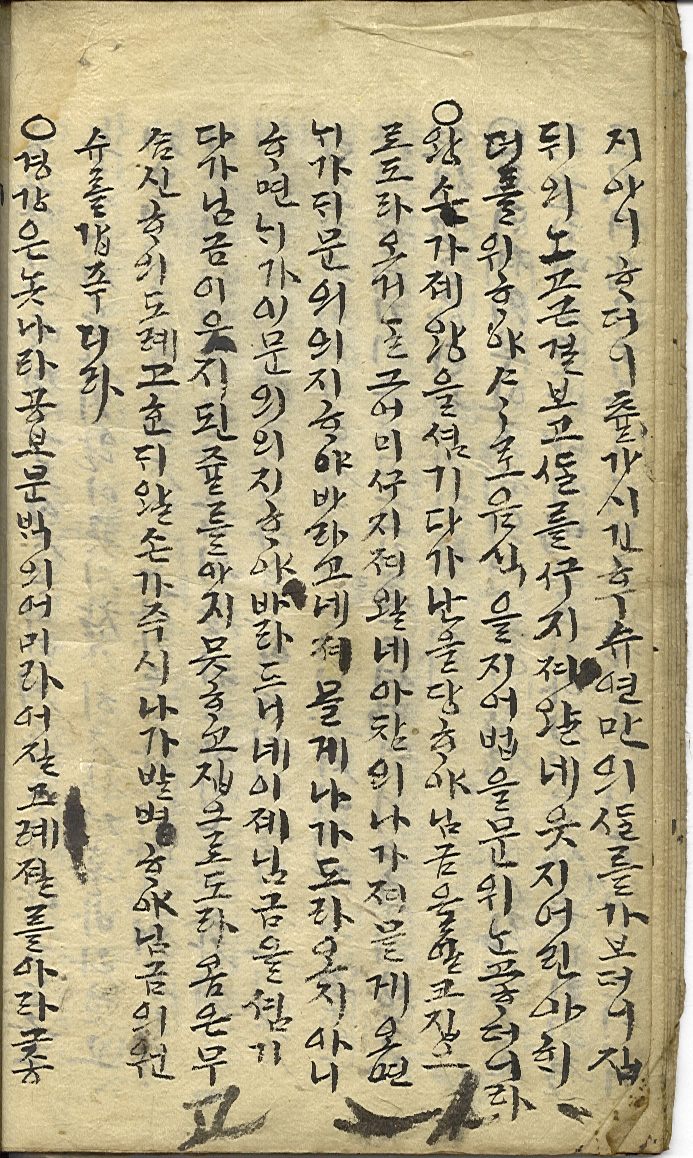 지아니ᄒᆞ더니 후슈연만의ᄯᆞᆯ를가보더니집
뒤의노픈걸보고ᄯᆞᆯ를ᄭᅮ지져왈네웃지어린아히
위ᄒᆞ야ᄉᆞᄉᆞ로음식을지어법을문위 ᄒᆞ더니라
○왕손가제왕을셤기다가난을당ᄒᆞ야님금을일코집으
로도라오거ᄂᆞᆯ그어미ᄭᅮ지져왈네아참의나가져믈게오면
ᄂᆡ가뒤문의의지ᄒᆞ야바라고네져믈게나가도라오지아니
ᄒᆞ면ᄂᆡ가이문의의지ᄒᆞ야바라드니네이제님금을셤기
다가님금이읏지된쥴를아지못ᄒᆞ고집으로도라옴은무
ᄉᆞᆷ신ᄒᆞ의도례고ᄒᆞᆫ뒤왈손가즉시나가발병ᄒᆞ야님금의원
슈를갑푸니라
○경강은노나라공보문ᄇᆡᆨ의어미라어질고례졀를아라그종